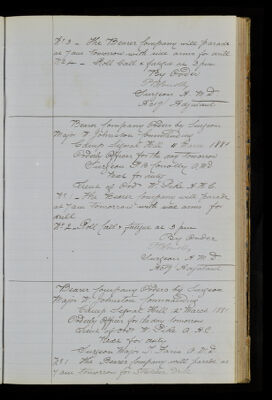 No 3 - The Bearer Company will parade
at 7 am tomorrow with side arms for drill
No 2 - Roll Call & fatigue at 3 pm
By Order
Surgeon A.M.D
Actg Adjutant
Bearer Company Orders by Surgeon
Major W Johnston Commanding
Camp Signal Hill 11 March 1881
Orderly Officer for the day tomorrow
Surgeon Connolly A.M.D
Next for duty
Lieut of Ords W. Pike A.H.C
No 1 - The Bearer Company will parade
at 7 am tomorrow with side arms for
drill
No 2 - Roll Call & fatigue at 3 pm
By Order
Surgeon A.M.D
Actg Adjutant
Bearer Company Orders by Surgeon
Major W Johnston Commanding
Camp Signal Hill 12 March 1881
Orderly Officer for the day tomorrow
Lieut of Ords W. Pike A.H.C
Next for duty
Surgeon Major A.M.D
No 1 The Bearer Company will parade at
7 am tomorrow for Stretcher Drill